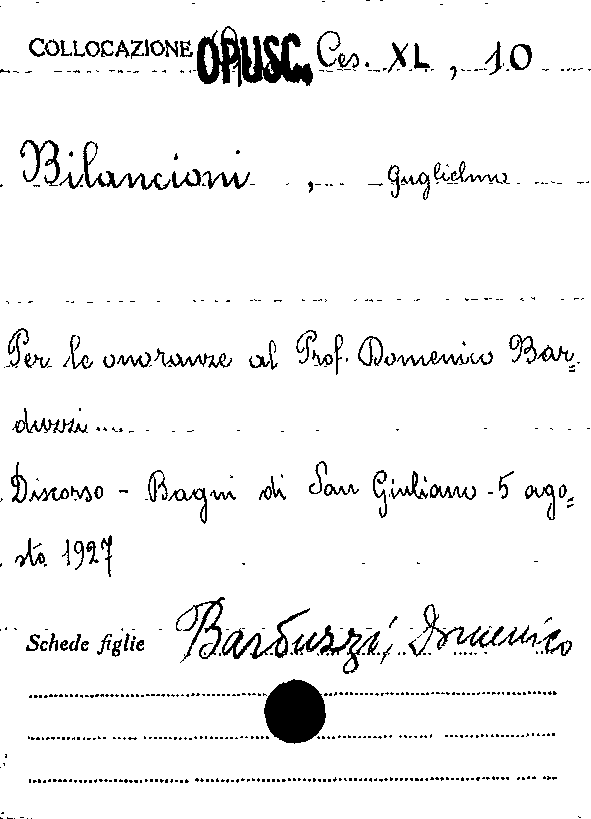 COLLOCAZIONE OPUSC. Ces. XL, 10
Bilancioni, Guglielmo
Per le onoranze al Prof. Domenico Bar=
duzzi....
Discorso - Bagni di San Giuliano - 5 ago=
sto 1927
Schede figlie Barduzzi, Domenico